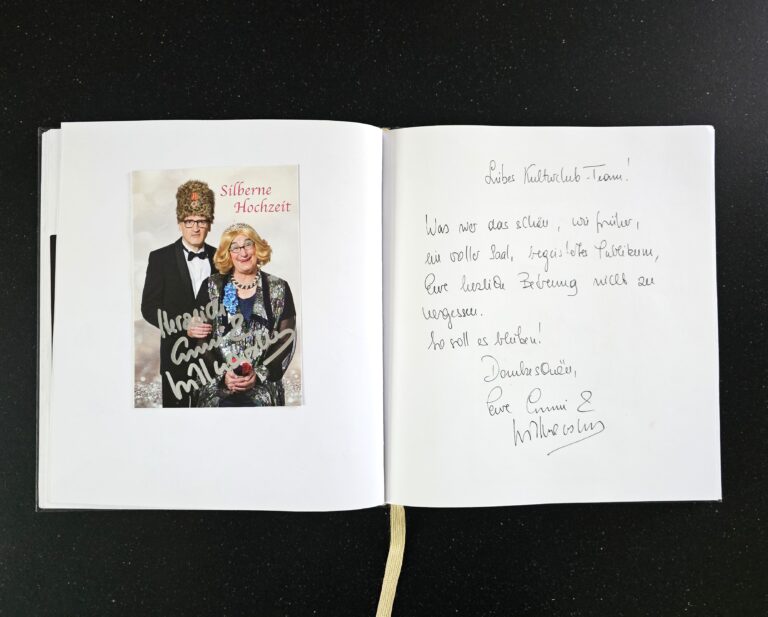 Silberne
Hochzeit
Emmi &
Willnowsky
Liebes Kulturclub-Team!
Was war das schön, wie früher,
ein voller Saal, begeistertes Publikum,
Eure herzliche Betreuung nicht zu
vergessen.
So soll es bleiben!
Dankeschön,
Eure Emmi &
Willnowsky